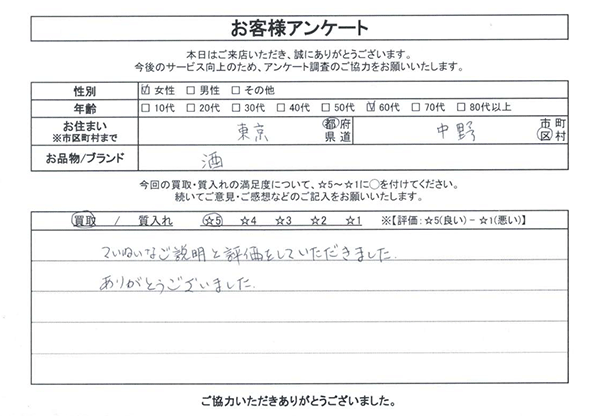 お客様アンケート
本日はご来店いただき、誠にありがとうございます。
今後のサービス向上のため、アンケート調査のご協力をお願いいたします。
性別 ☑ 女性 □ 男性 □ その他
年齢 □ 10代 □ 20代 □ 30代 □ 40代 □ 50代 ☑ 60代 □ 70代 □ 80代以上
お住まい 東京 都府 中野 市町
※市区町村まで 県道 区村
お品物/ブランド 酒
今回の買取・質入れの満足度について、☆5～☆1に○を付けてください。
続いてご意見・ご感想などのご記入をお願いいたします。
買取 / 質入れ ☆5 ☆4 ☆3 ☆2 ☆1 ※【評価:☆5(良い)-☆1(悪い)】
ていねいなご説明と評価をしていただきました.
ありがとうございました.
ご協力いただきありがとうございました。